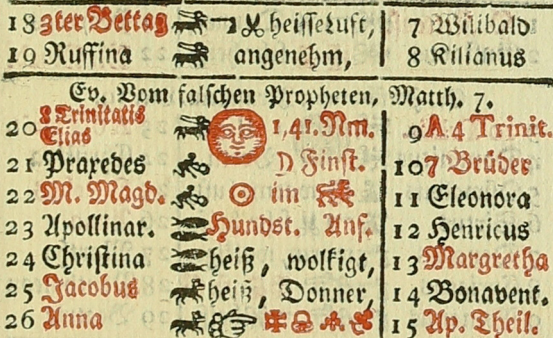 18 3ter Bettag heisse Luft, 7 Willibald
19 Ruffina angenehm, 8 Kilianus
Ev. Vom falschen Propheten, Matth. 7.
20 8 Trinitatis Elias 1,41. Nm. 9 A 4 Trinit.
21 Praxedes ☽ Finst. 10 7 Brüder
22 M. Magd. ☉ im 11 Eleonora
23 Apollinar. Hundst. Anf. 12 Henricus
24 Christina heiß, wolkigt, 13 Margretha
25 Jacobus heiß, Donner, 14 Bonavent.
26 Anna 15 Ap. Theil.